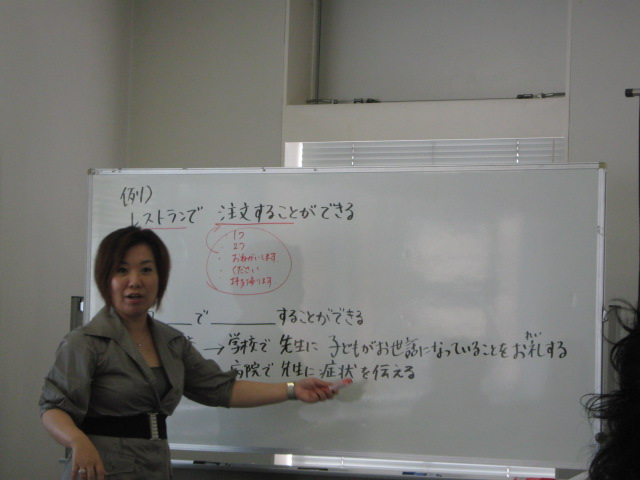 例1)
レストランで 注文することができる
・1つ
・2つ
・おねがいします
・ください
・持ち帰ります
で することができる
→学校で 先生に 子どもがお世話になっていることをお礼する
れい
病院で 先生に症状を伝える